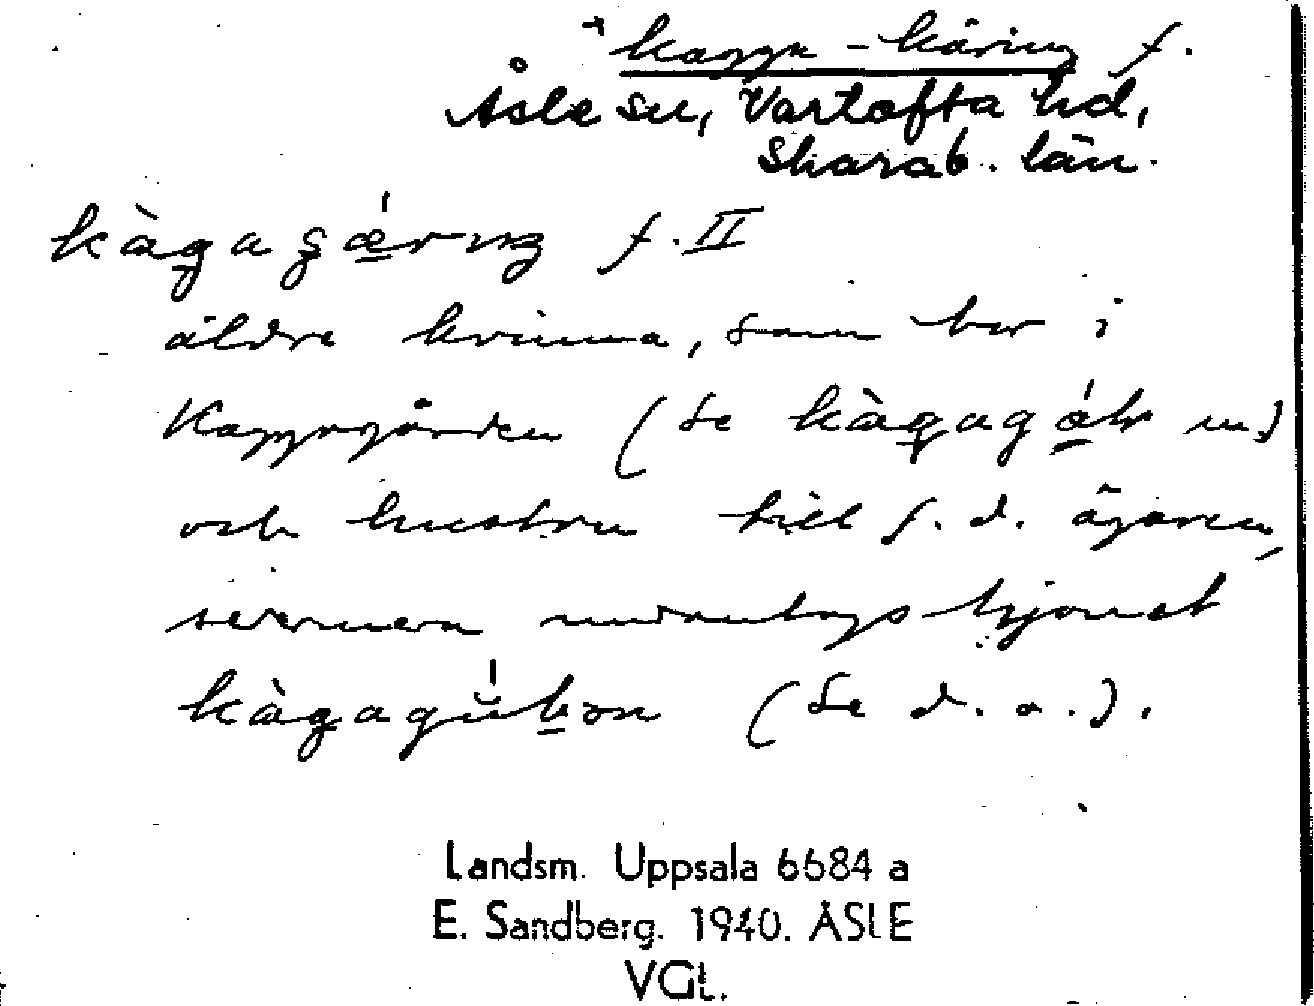 *kagga-käring f.
Åsle sn, Vartofta hd,
Skarab. län.
kàgagǽrıŋ f. II
äldre kvinna, som bor i
Kaggagården (se kàgagáɽ m.)
och hustru till f. d. ägaren,
sedermera undantagshjonet
kàgagúbən (se d. o.).
Landsm. Uppsala 6684 a
E. Sandberg. 1940. ÅSLE
VGL.